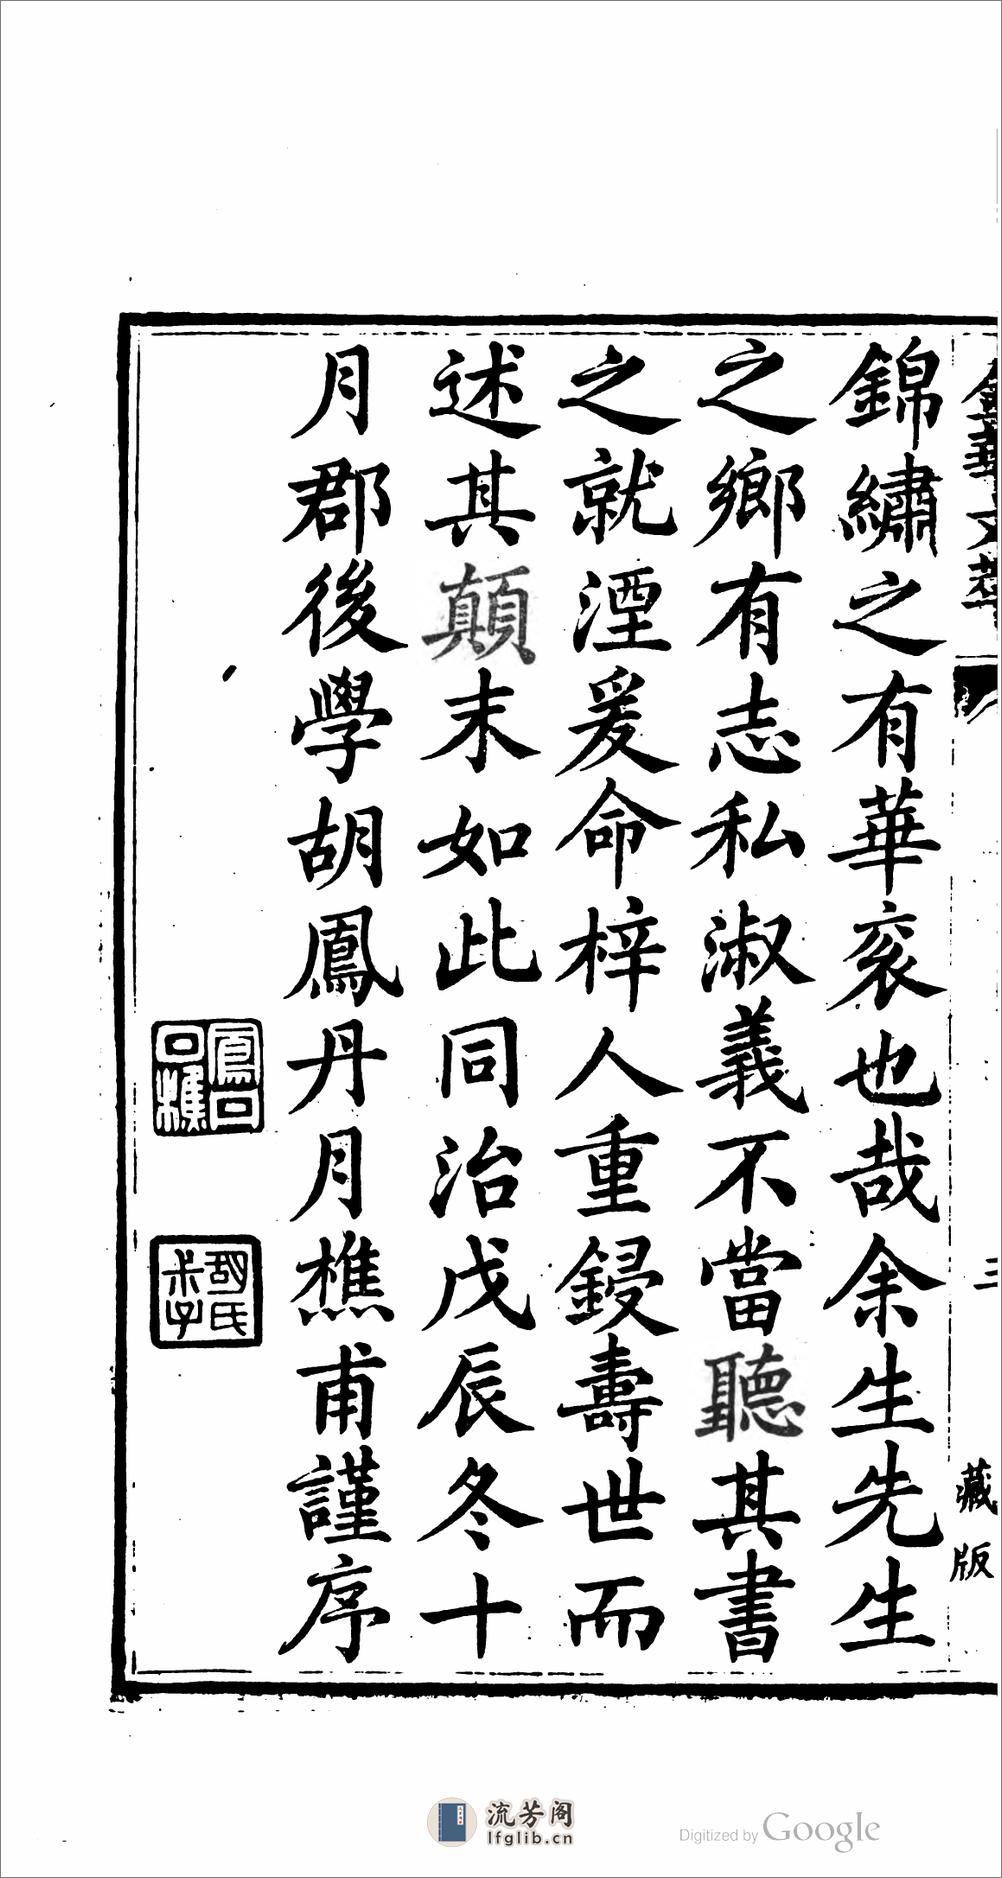 金華文萃
三
藏版
錦繡之有華衮也哉余生先生
之鄉有志私淑義不當聽其書
之就湮爰命梓人重鋟壽世而
述其顛末如此同治戊辰冬十
月郡後學胡鳳丹月樵甫謹序
胡氏
流芳阁
lfglib.cn
Digitized by Google